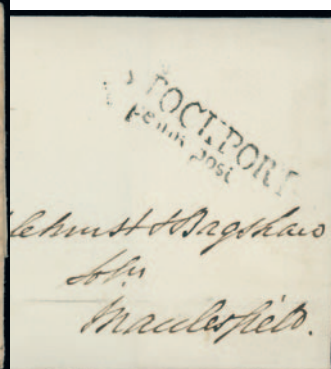 STOCKPORT
Penny Post
& Bagshaw
Solrs
Macclesfield.